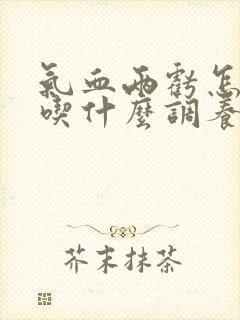 氣血兩虧怎
喫什麼調養
芥末抹茶